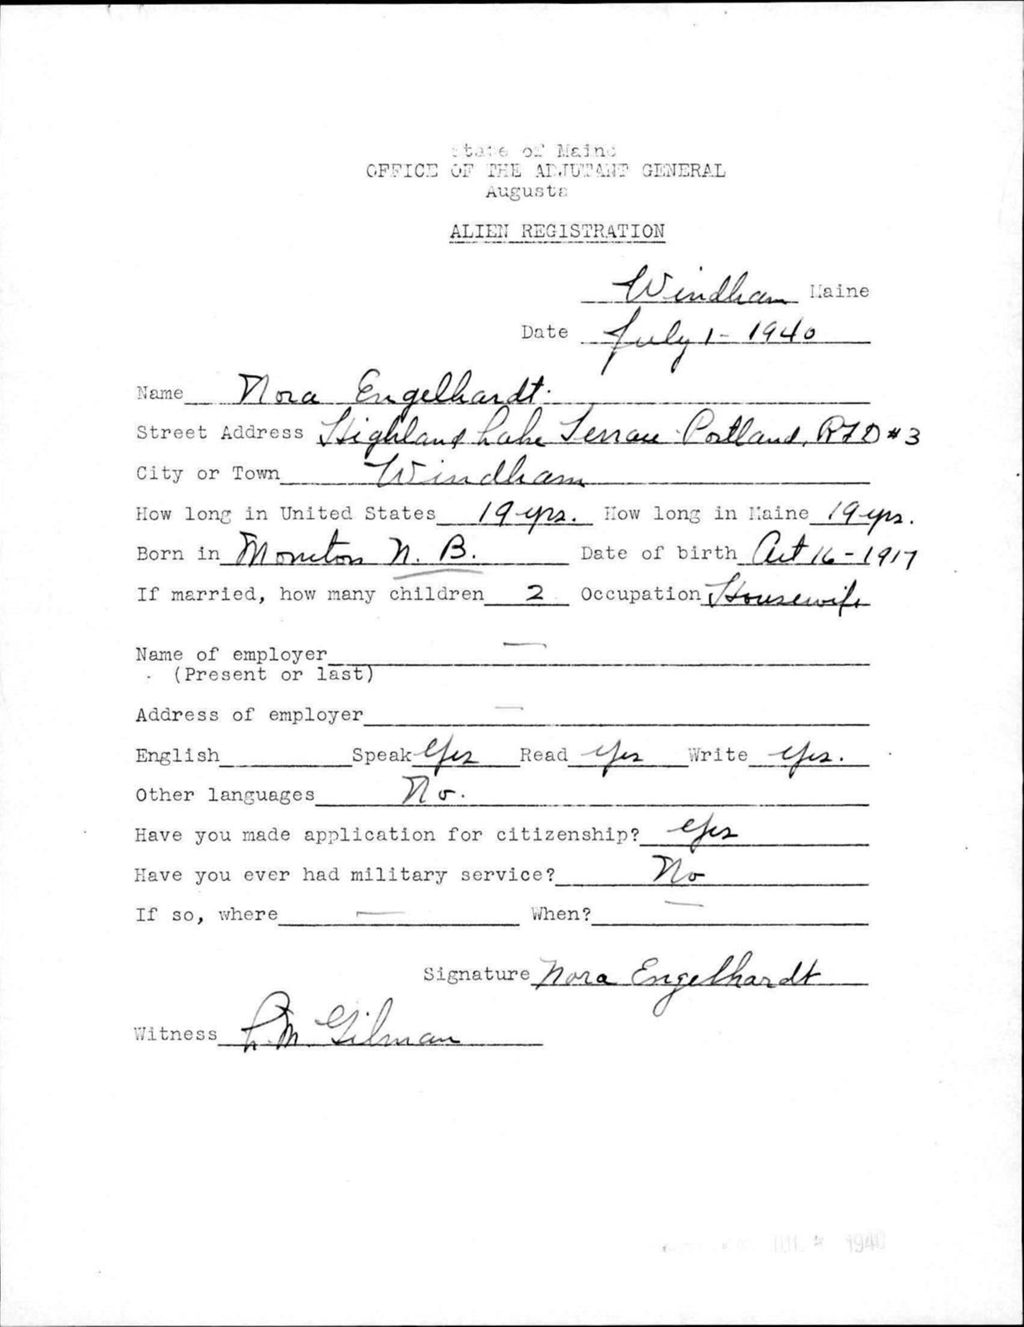 State of Maine
OFFICE OF THE ADJUTANT GENERAL
Augusta
ALIEN REGISTRATION
Windham Maine
Date July 1 - 1940
Name Nora Engelhardt.
Street Address Highland Lake Terrace Portland, RFD #3
City or Town Windham
How long in United States 19 yrs. How long in Maine 19 yrs.
Born in Moncton N. B. Date of birth Oct 16 - 1917
If married, how many children 2 Occupation Housewife
Name of employer —
(Present or last)
Address of employer —
English Speak Yes Read Yes Write Yes.
Other languages No.
Have you made application for citizenship? Yes
Have you ever had military service? No
If so, where — When? —
Signature Nora Engelhardt
Witness L. M. Gilman
JUL 1940